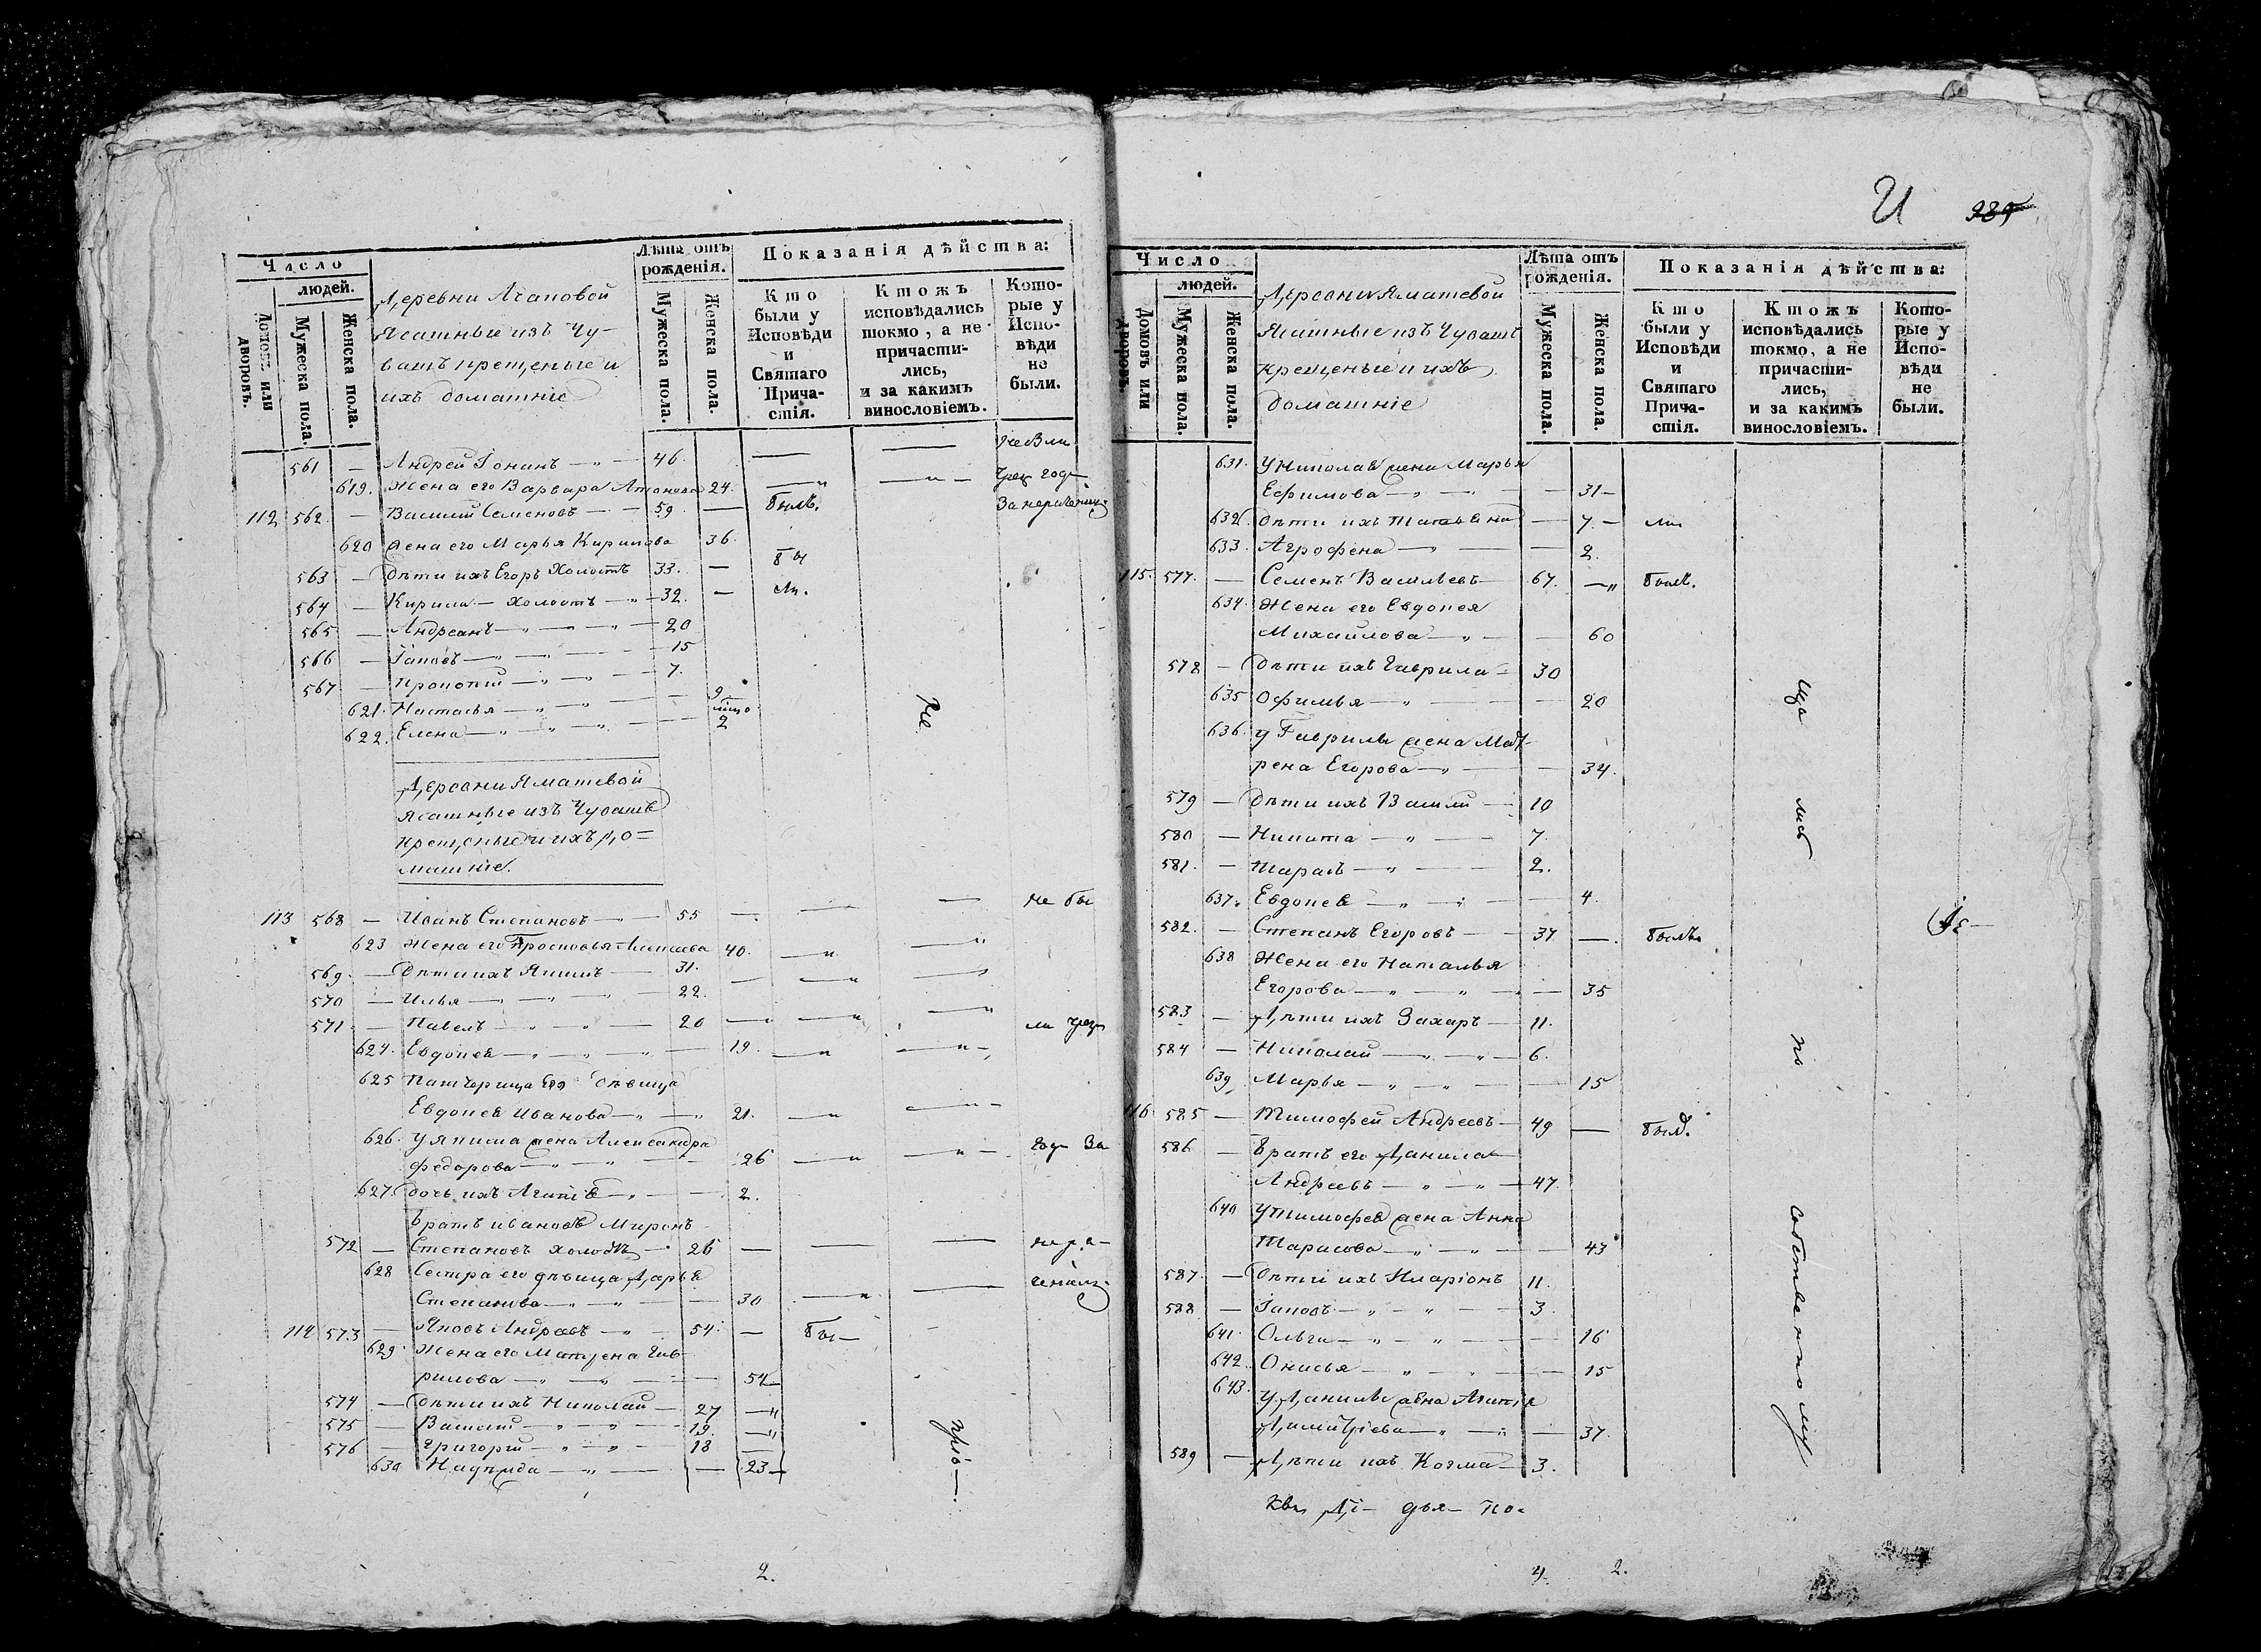 Число
людей.
Домовъ или дворовъ.
Мужеска пола.
Женска пола.
Деревни Агаповой
Ясашные изъ Чу-
вашъ крещеные и
ихъ домашніе
Лѣта отъ рожденія.
Мужеска пола.
Женска пола.
Показанія дѣйства:
Кто были у Исповѣди и Святаго Прича-стія.
Ктожъ исповѣдались токмо, а не причасти-лись, и за какимъ винословіемъ.
Кото-рые у Испо-вѣди не были.
561 — Андрей Іонинъ — 46
619. Жена его Варвара 24.
112 562 — Василій Семеновъ — 59 — былъ.
620 жена его Марья Кирилова 36.
563 — Дѣти ихъ Егоръ холостъ 33. — бы
564 — Кирила — холостъ — 32. — ли.
565 — Андреанъ — 20
566 — Іаковъ — 15
567 — Прокопій — 7.
621. Настасья — 9
622. Елена — 2
Не
Деревни Яматевой
Ясашные изъ Чувашъ
крещеные и ихъ до=
машніе.
113 568 — Иванъ Степановъ — 55 — не бы
623 Жена его Просковья Алексеева 40.
569. — Дѣти ихъ Якимъ — 31.
570 — Илья — 22.
571. — Павелъ — 20
624. Евдокея — 19.
625 Падчерица его девица
Евдокея Иванова — 21.
626. у Якима жена Александра
Федорова — 26
627. дочь ихъ — 2.
Братъ ивановъ Миронъ
572 — Степановъ холостъ — 26
628 Сестра его девица Дарья
Степанова — 30
114 573 — Яковъ Андреевъ — 54. — бы—
629. Жена его Матрена Гав-
рилова — 54
574 — Дѣти ихъ Николай — 27
575 — Василій — 19.
576 — Григорій — 18
630 — 23
прі о—
2.
И
984
Число
людей.
Домовъ или дворовъ.
Мужеска пола.
Женска пола.
Деревни Яматевой
Ясашные изъ Чувашъ
крещеные и ихъ
домашніе
Лѣта отъ рожденія.
Мужеска пола.
Женска пола.
Показанія дѣйства:
Кто были у Исповѣди и Святаго Прича-стія.
Ктожъ исповѣдались токмо, а не причасти-лись, и за какимъ винословіемъ.
Кото-рые у Испо-вѣди не были.
631. У Николая жена Марья
Ефимова — 31
632. дѣти ихъ Татьяна — 7. — ли
633. Агрофена — 2.
115. 577. — Семенъ Васильевъ — 67. — были.
634. Жена его Евдокея
Михайлова — 60
578 — Дѣти ихъ Гаврила — 30
635 Офимья — 20
636. у Гаврилы жена Мат-
рена Егорова — 34.
579 — Дѣти ихъ Василій — 10
580 — Никита — 7.
581. — Тарасъ — 2.
637. Евдокея — 4.
582. — Степанъ Егоровъ — 37 — былъ
638 Жена его Наталья
Егорова — 35
583 — Дѣти ихъ Захаръ — 11.
584 — Николай — 6.
639. Марья — 15
116. 585 — Тимофей Андреевъ — 49 — был.
586 — Братъ его Данила
Андреевъ — 47.
640 У Тимофея жена Анна
Тарасова — 43
587. — Дѣти их Иларіонъ 11.
588 — Іаковъ — 3.
641. Ольга — 16
642. Онисья — 15
643. У Данилы жена
Димитріева — 37.
589 — Дѣти ихъ Козма — 3.
ща
лись
по
собственному
Ді— дья— ко.
4. 2.